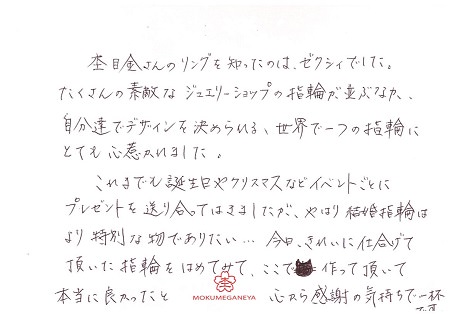 杢目金さんのリングを知ったのは、ゼクシィでした。
たくさんの素敵なジュエリーショップの指輪が並ぶなか、
自分達でデザインを決められる、世界で一つの指輪に
とても心惹かれました。
これまでも誕生日やクリスマスなどイベントごとに
プレゼントを送り合ってはきましたが、やはり結婚指輪は
より特別な物でありたい… 今日、きれいに仕上げて
頂いた指輪をはめてみて、ここで作って頂いて
本当に良かったと 心から感謝の気持ちで一杯
です。
MOKUMEGANEYA